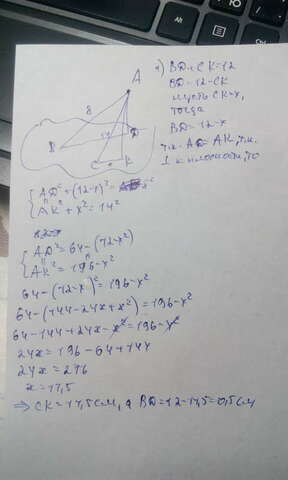 A
8
14
D
B
C
K
1) BD + CK = 12
BD = 12 - CK
пусть CK = x,
тогда
BD = 12 - x
т.к. AD = AK, т.к.
⊥ к плоскости, то
{ AD² + (12-x)² =
AK² + x² = 14²
{ AD² = 64 - (12-x)²
AK² = 196 - x²
64 - (12-x)² = 196 - x²
64 - (144 - 24x + x²) = 196 - x²
64 - 144 + 24x - x² = 196 - x²
24x = 196 - 64 + 144
24x = 276
x = 11,5
⇒ CK = 11,5 см, а BD = 12 - 11,5 = 0,5 см